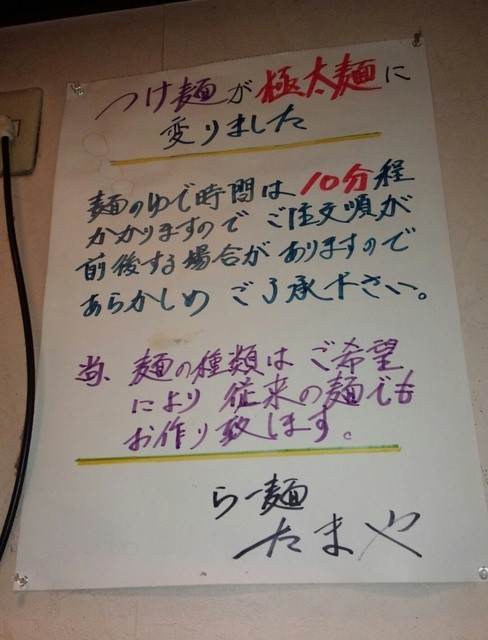 つけ麺が極太麺に
変りました
麺のゆで時間は10分程
かかりますので ご注文順が
前後する場合が ありますので
あらかじめ ご了承下さい。
尚、麺の種類は ご希望
により 従来の麺でも
お作り致します。
らー麺
たまや